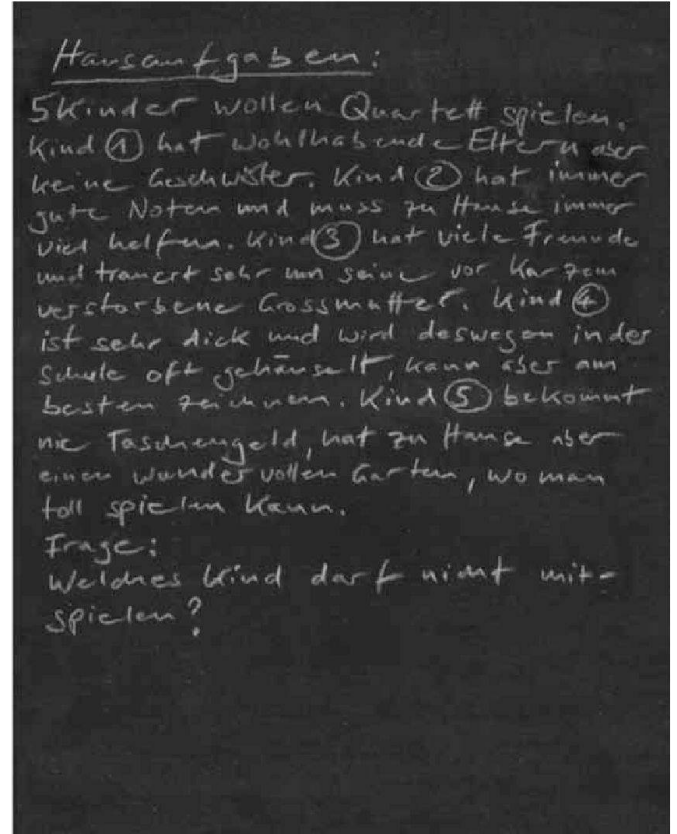 Hausaufgaben:
5 Kinder wollen Quartett spielen.
Kind ① hat wohlhabende Eltern aber
keine Geschwister. Kind ② hat immer
gute Noten und muss zu Hause immer
viel helfen. Kind ③ hat viele Freunde
und trauert sehr um seine vor kurzem
verstorbene Grossmutter. Kind ④
ist sehr dick und wird deswegen in der
Schule oft gehänselt, kann aber am
besten zeichnen. Kind ⑤ bekommt
nie Taschengeld, hat zu Hause aber
einen wundervollen Garten, wo man
toll spielen kann.
Frage:
Welches Kind darf nicht mit-
spielen?